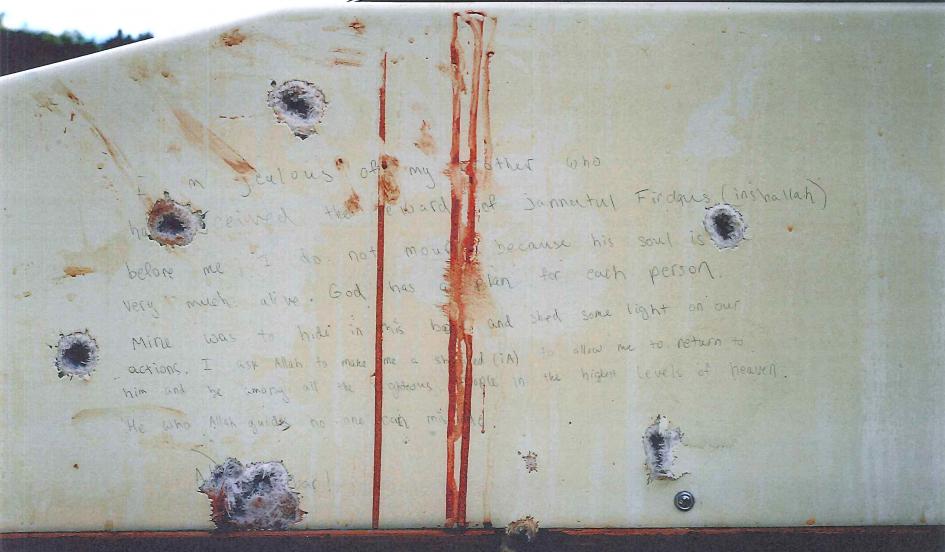 I jealous of my who
the reward of Jannutul Firdaus (inshallah)
before me. I do not because his soul is
very much alive. God has a plan for each person.
Mine was to hide in this and shed some light on our
actions. I ask Allah to make me a (iA) to allow me to return to
him and be among all the righteous people in the highest levels of heaven.
He who Allah guides no one can